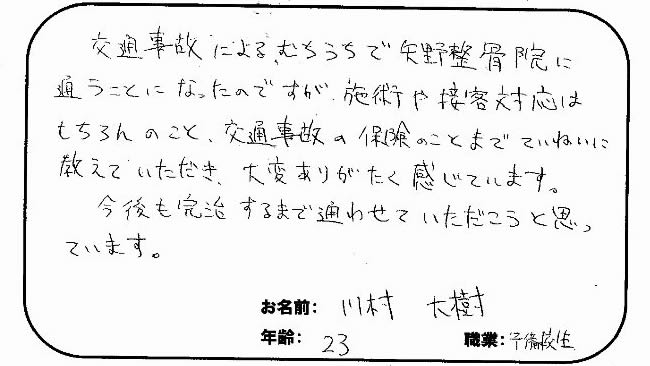 交通事故による、むちうちで矢野整骨院に
通うことになったのですが、施術や接客対応は
もちろんのこと、交通事故の保険のことまでていねいに
教えていただき、大変ありがたく感じています。
今後も完治するまで通わせていただこうと思っ
ています。
お名前: 川村 大樹
年齢: 23 職業: 予備校生